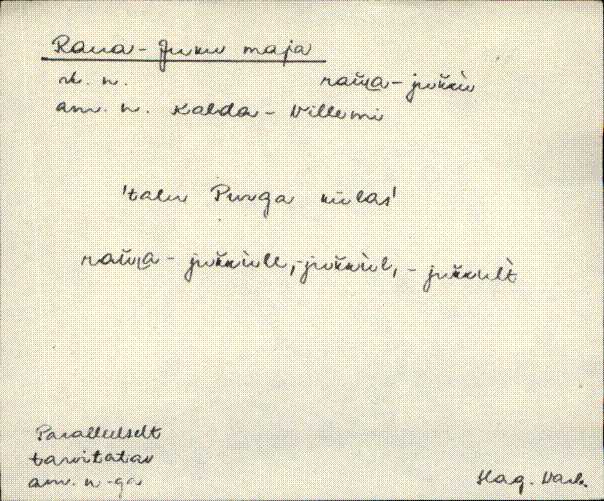 Raua - Juku maja
rk. n. rau̯a - jukku
am. n. Kalda - Villemi
'talu Purga külas'
rau̯a - jukkule, - jukkul, - jukkult
Paralleelselt
tarvitatav
am. n - ga
Hag. Vark.